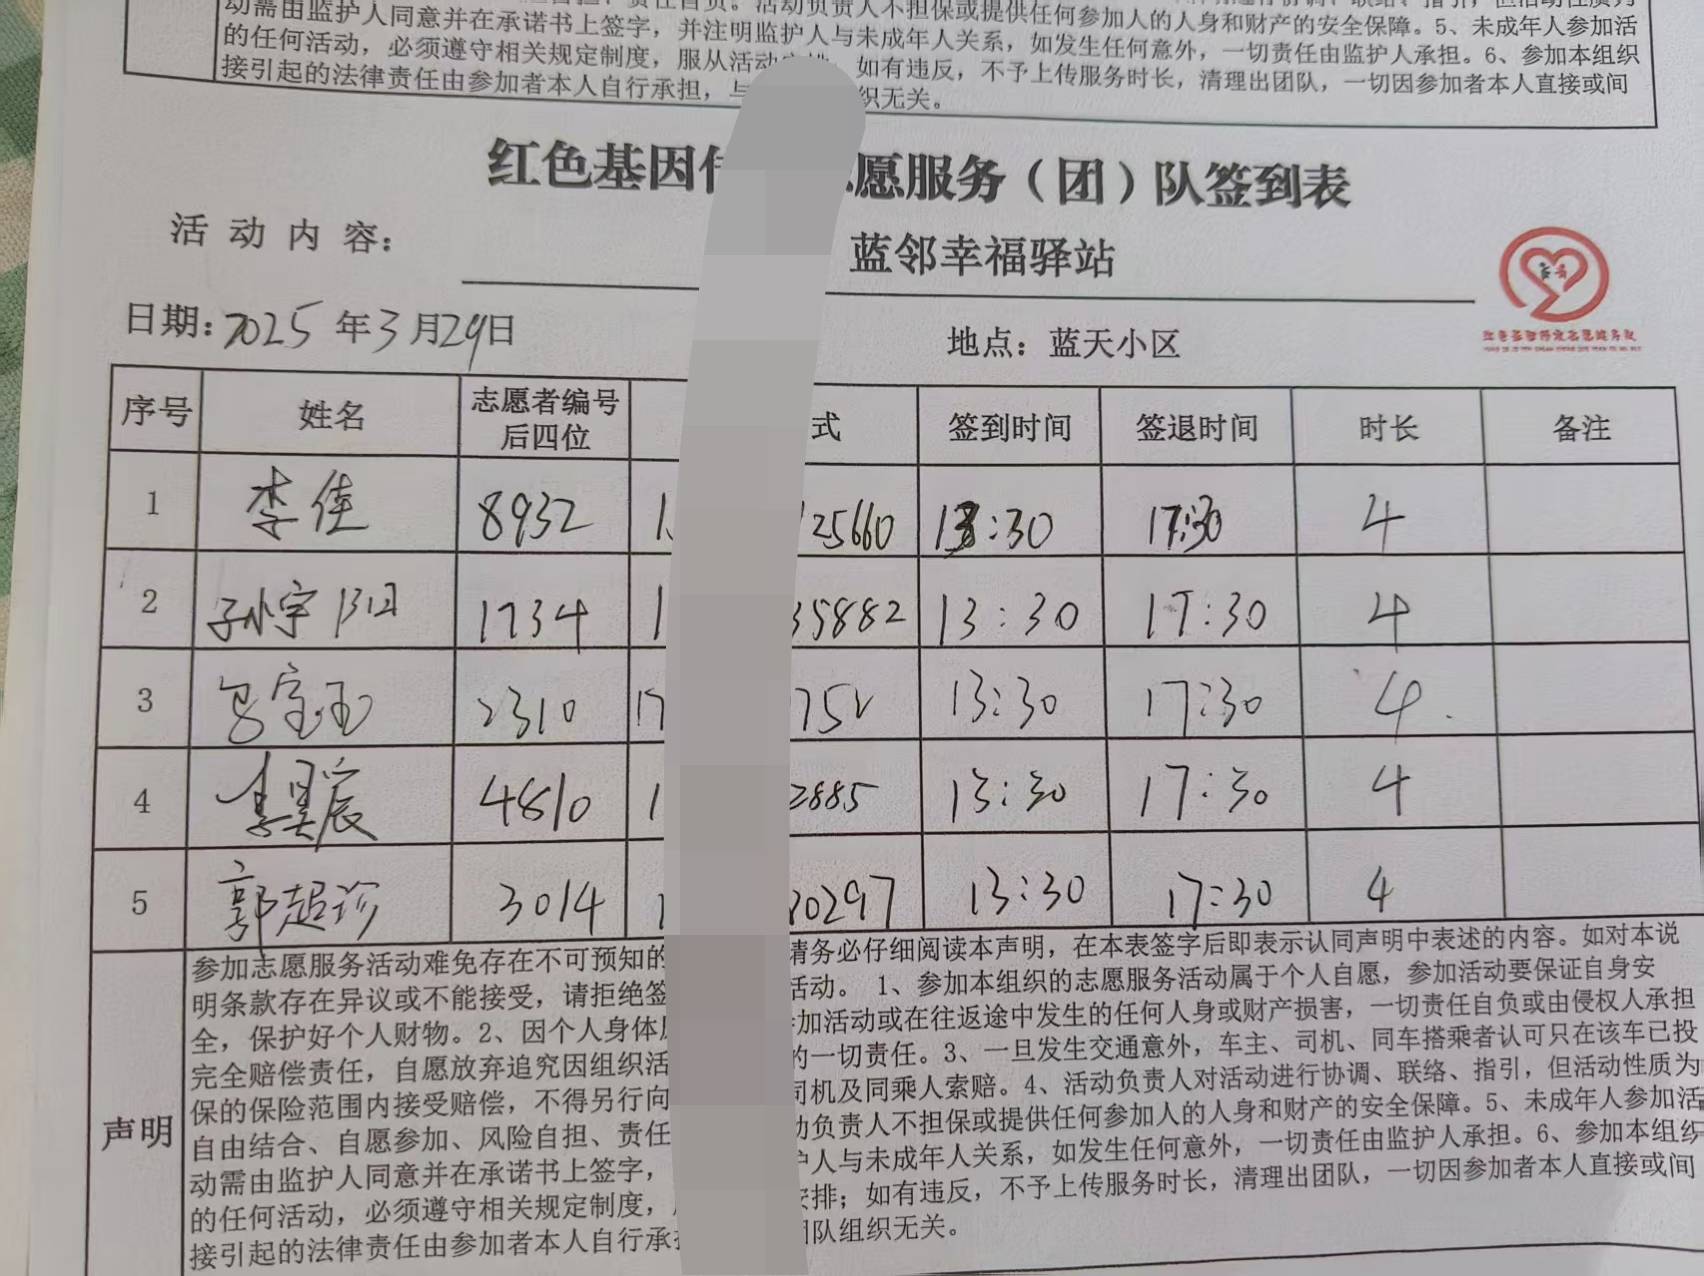 动需由监护人同意并在承诺书上签字，并注明监护人与未成年人关系，如发生任何意外，一切责任由监护人承担。6、参加本组织
的任何活动，必须遵守相关规定制度，服从活动 如有违反，不予上传服务时长，清理出团队，一切因参加者本人直接或间
接引起的法律责任由参加者本人自行承担，与 织无关。
红色基因 愿服务（团）队签到表
活动内容： 蓝邻幸福驿站
日期：2025年3月29日 地点：蓝天小区
序号 姓名 志愿者编号后四位 式 签到时间 签退时间 时长 备注
1 李佳 8932 1 25660 13:30 17:30 4
2 孙宇 1734 1 35882 13:30 17:30 4
3 吕宝玉 2310 17 752 13:30 17:30 4
4 李昊宸 4810 1 2885 13:30 17:30 4
5 郭超 3014 1 20297 13:30 17:30 4
声明
参加志愿服务活动难免存在不可预知的 请务必仔细阅读本声明，在本表签字后即表示认同声明中表述的内容。如对本说
明条款存在异议或不能接受，请拒绝签 活动。 1、参加本组织的志愿服务活动属于个人自愿，参加活动要保证自身安
全，保护好个人财物。2、因个人身体 加活动或在往返途中发生的任何人身或财产损害，一切责任自负或由侵权人承担
完全赔偿责任，自愿放弃追究因组织活 的一切责任。3、一旦发生交通意外，车主、司机、同车搭乘者认可只在该车已投
保的保险范围内接受赔偿，不得另行向 司机及同乘人索赔。4、活动负责人对活动进行协调、联络、指引，但活动性质为
自由结合、自愿参加、风险自担、责任 动负责人不担保或提供任何参加人的人身和财产的安全保障。5、未成年人参加活
动需由监护人同意并在承诺书上签字， 人与未成年人关系，如发生任何意外，一切责任由监护人承担。6、参加本组织
的任何活动，必须遵守相关规定制度， 安排；如有违反，不予上传服务时长，清理出团队，一切因参加者本人直接或间
接引起的法律责任由参加者本人自行承 团队组织无关。